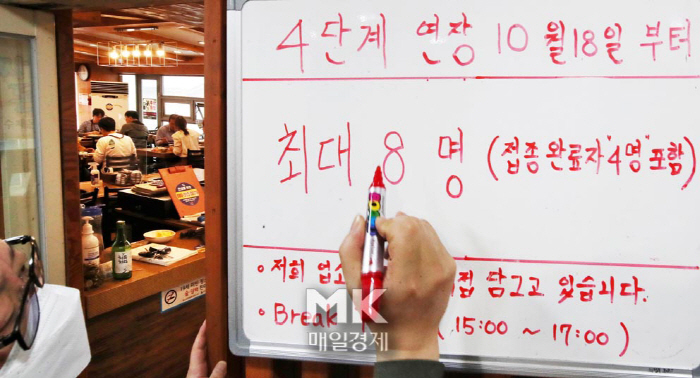 4단계 연장 10월18일 부터
최대 8 명 (접종완료자 "4명" 포함)
• 저희 업소 접 담그고 있습니다.
• Break ( 15:00 ~ 17:00 )
MK
매일경제